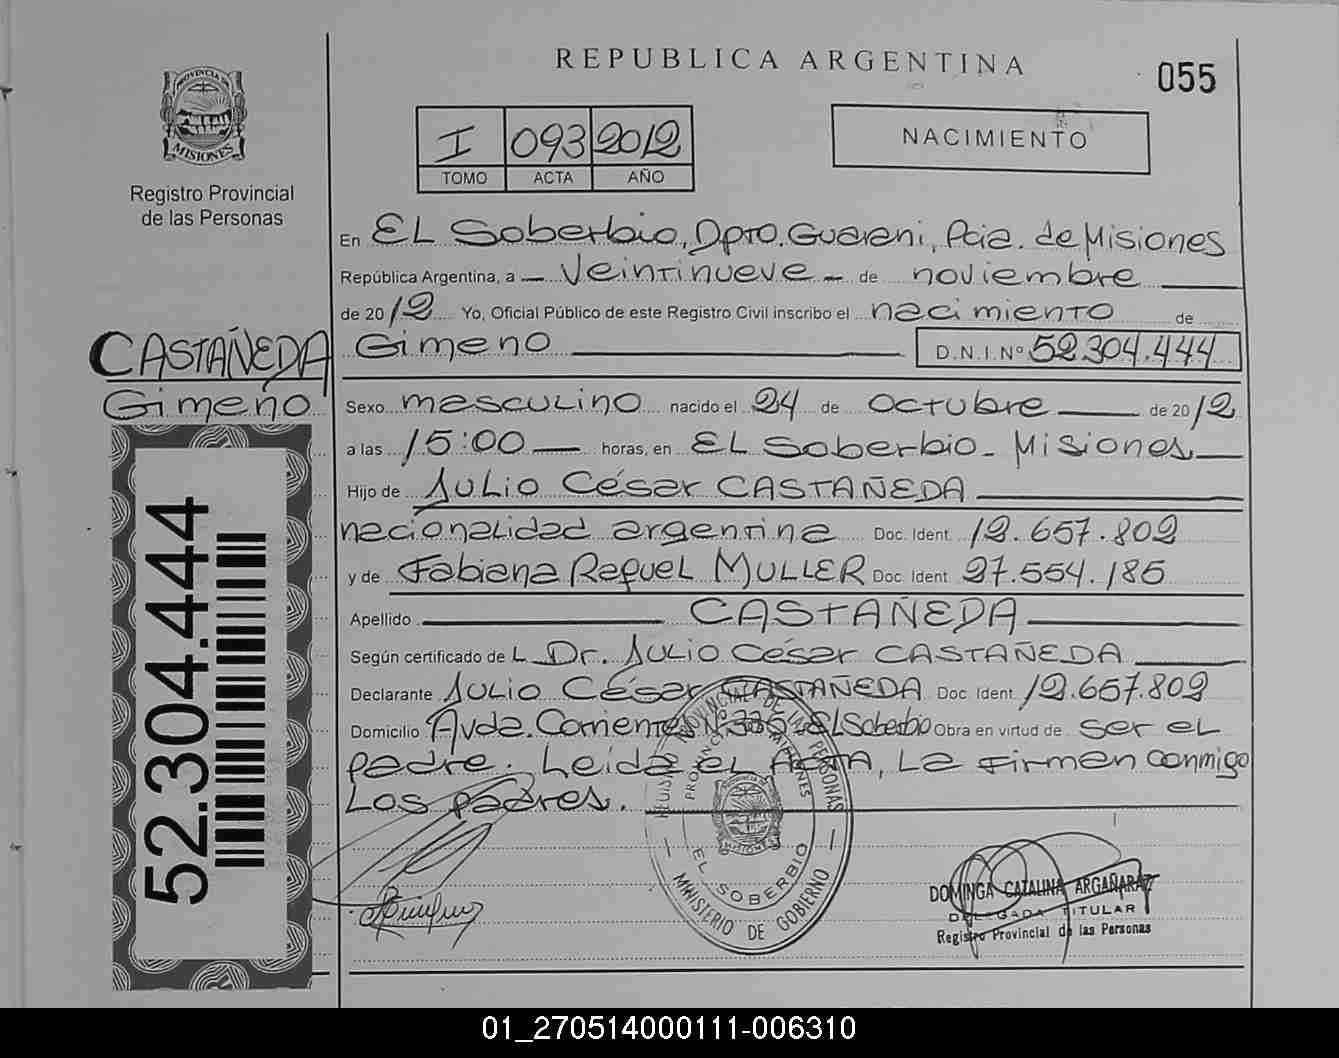 REPUBLICA ARGENTINA
055
PROVINCIA DE
MISIONES
Registro Provincial
de las Personas
I 093 2012
TOMO ACTA AÑO
NACIMIENTO
En EL Soberbio, Dpto. Guarani, Pcia. de Misiones
República Argentina, a — Veintinueve — de noviembre
de 2012 Yo, Oficial Público de este Registro Civil inscribo el nacimiento de
CASTAÑEDA
Gimeno
Gimeno D.N.I.Nº 52.304.444
Sexo masculino nacido el 24 de octubre de 2012
a las 15:00 horas, en EL Soberbio - Misiones
Hijo de Julio César CASTAÑEDA
nacionalidad argentina Doc. Ident. 12.657.802
y de Fabiana Raquel MULLER Doc. Ident. 27.554.185
Apellido CASTAÑEDA
Según certificado de L Dr. Julio César CASTAÑEDA
Declarante Julio César CASTAÑEDA Doc. Ident. 12.657.802
Domicilio Avda. Corrientes Nº 336 - El Soberbio Obra en virtud de ser el
padre. Leida el Acta, La firman conmigo
Los padres.
52.304.444
PROVINCIA DE MISIONES
EL SOBERBIO
MINISTERIO DE GOBIERNO
DOMINGA CATALINA ARGAÑARAZ
DELEGADA TITULAR
Registro Provincial de las Personas
01_270514000111-006310